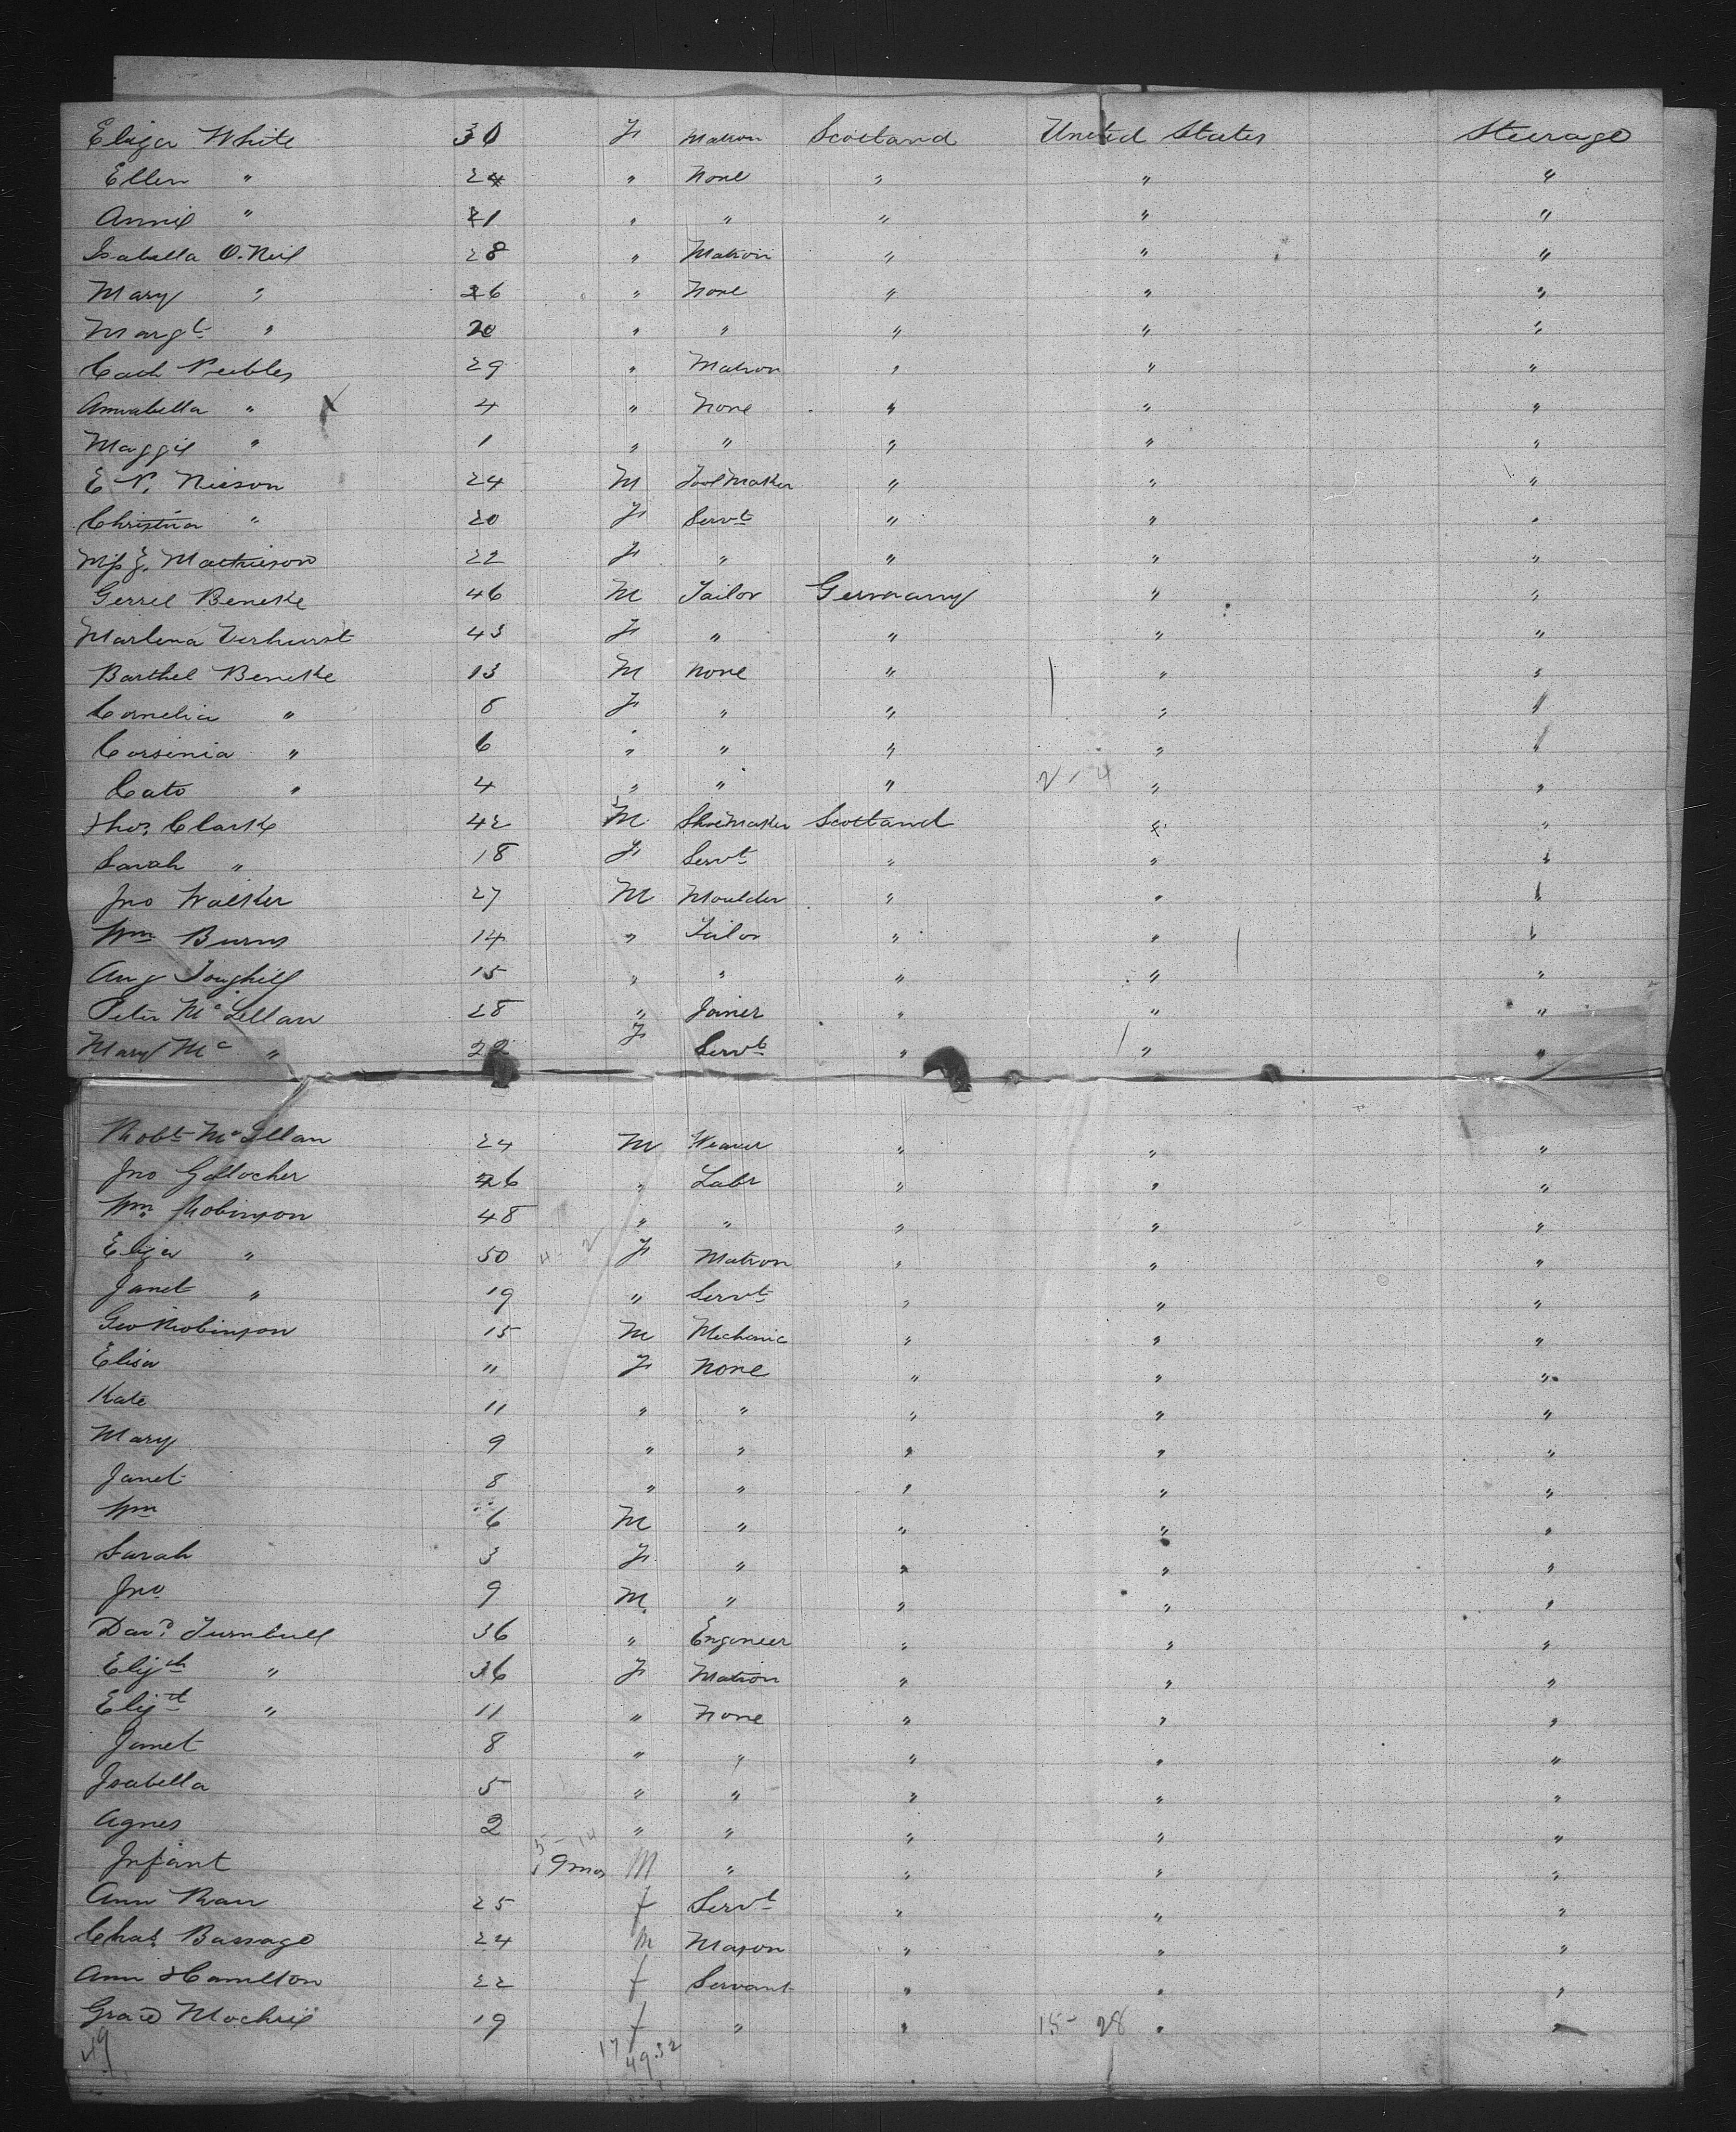 Eliza White 30 F Matron Scotland United States Steerage
Ellen " 24 " None " " "
Annie " 21 " " " " "
Isabella O.Neil 28 " Matron " " "
Mary " 26 " None " " "
Margt " 20 " " " " "
Cath Peebles 29 " Matron " " "
Annabella " 4 " None " " "
Maggie " 1 " " " " "
E P. Nieson 24 M Tool Maker " " "
Christina " 20 F Servt " " "
Miss J. Mathieson 22 F " " " "
Gerrel Beneke 46 M Tailor Germany " "
Marlena Verhurst 43 F " " " "
Barthel Beneke 13 M None " " "
Cornelia " 8 F " " " "
Corsinia " 6 " " " " "
Cato " 4 " " " 2 - 4 " "
Thos. Clark 42 M Shoe Maker Scotland " "
Sarah " 18 F Servt " " "
Jno Walker 27 M Moulder " " "
Wm Burns 14 " Tailor " " "
Aug Toughill 15 " " " " "
Peter McLellan 28 " Joiner " " "
Mary Mc " 22 F Servt " " "
Robt McLellan 24 M Weaver " " "
Jno Gallocher 26 " Labr " " "
Wm. Robinson 48 " " " " "
Eliza " 50 F Matron " " "
Janet " 19 " Servt " " "
Geo Robinson 15 M Mechanic " " "
Elisa " F None " " "
Kate 11 " " " " "
Mary 9 " " " " "
Janet 8 " " " " "
Wm 6 M " " " "
Sarah 3 F " " " "
Jno 9 M. " " " "
Davd. Turnbull 36 " Engineer " " "
Elizth " 36 F Matron " " "
Elizth " 11 " None " " "
Janet 8 " " " " "
Isabella 5 " " " " "
Agnes 2 " " " " "
Infant 9 mos M " " " "
Ann Rau 25 f Servt " " "
Chas. Bassage 24 M Mason " " "
Ann Hamilton 22 f Servant " " "
Grace Mochrie 19 f " " 15 - 28 " "
49 17 49.32